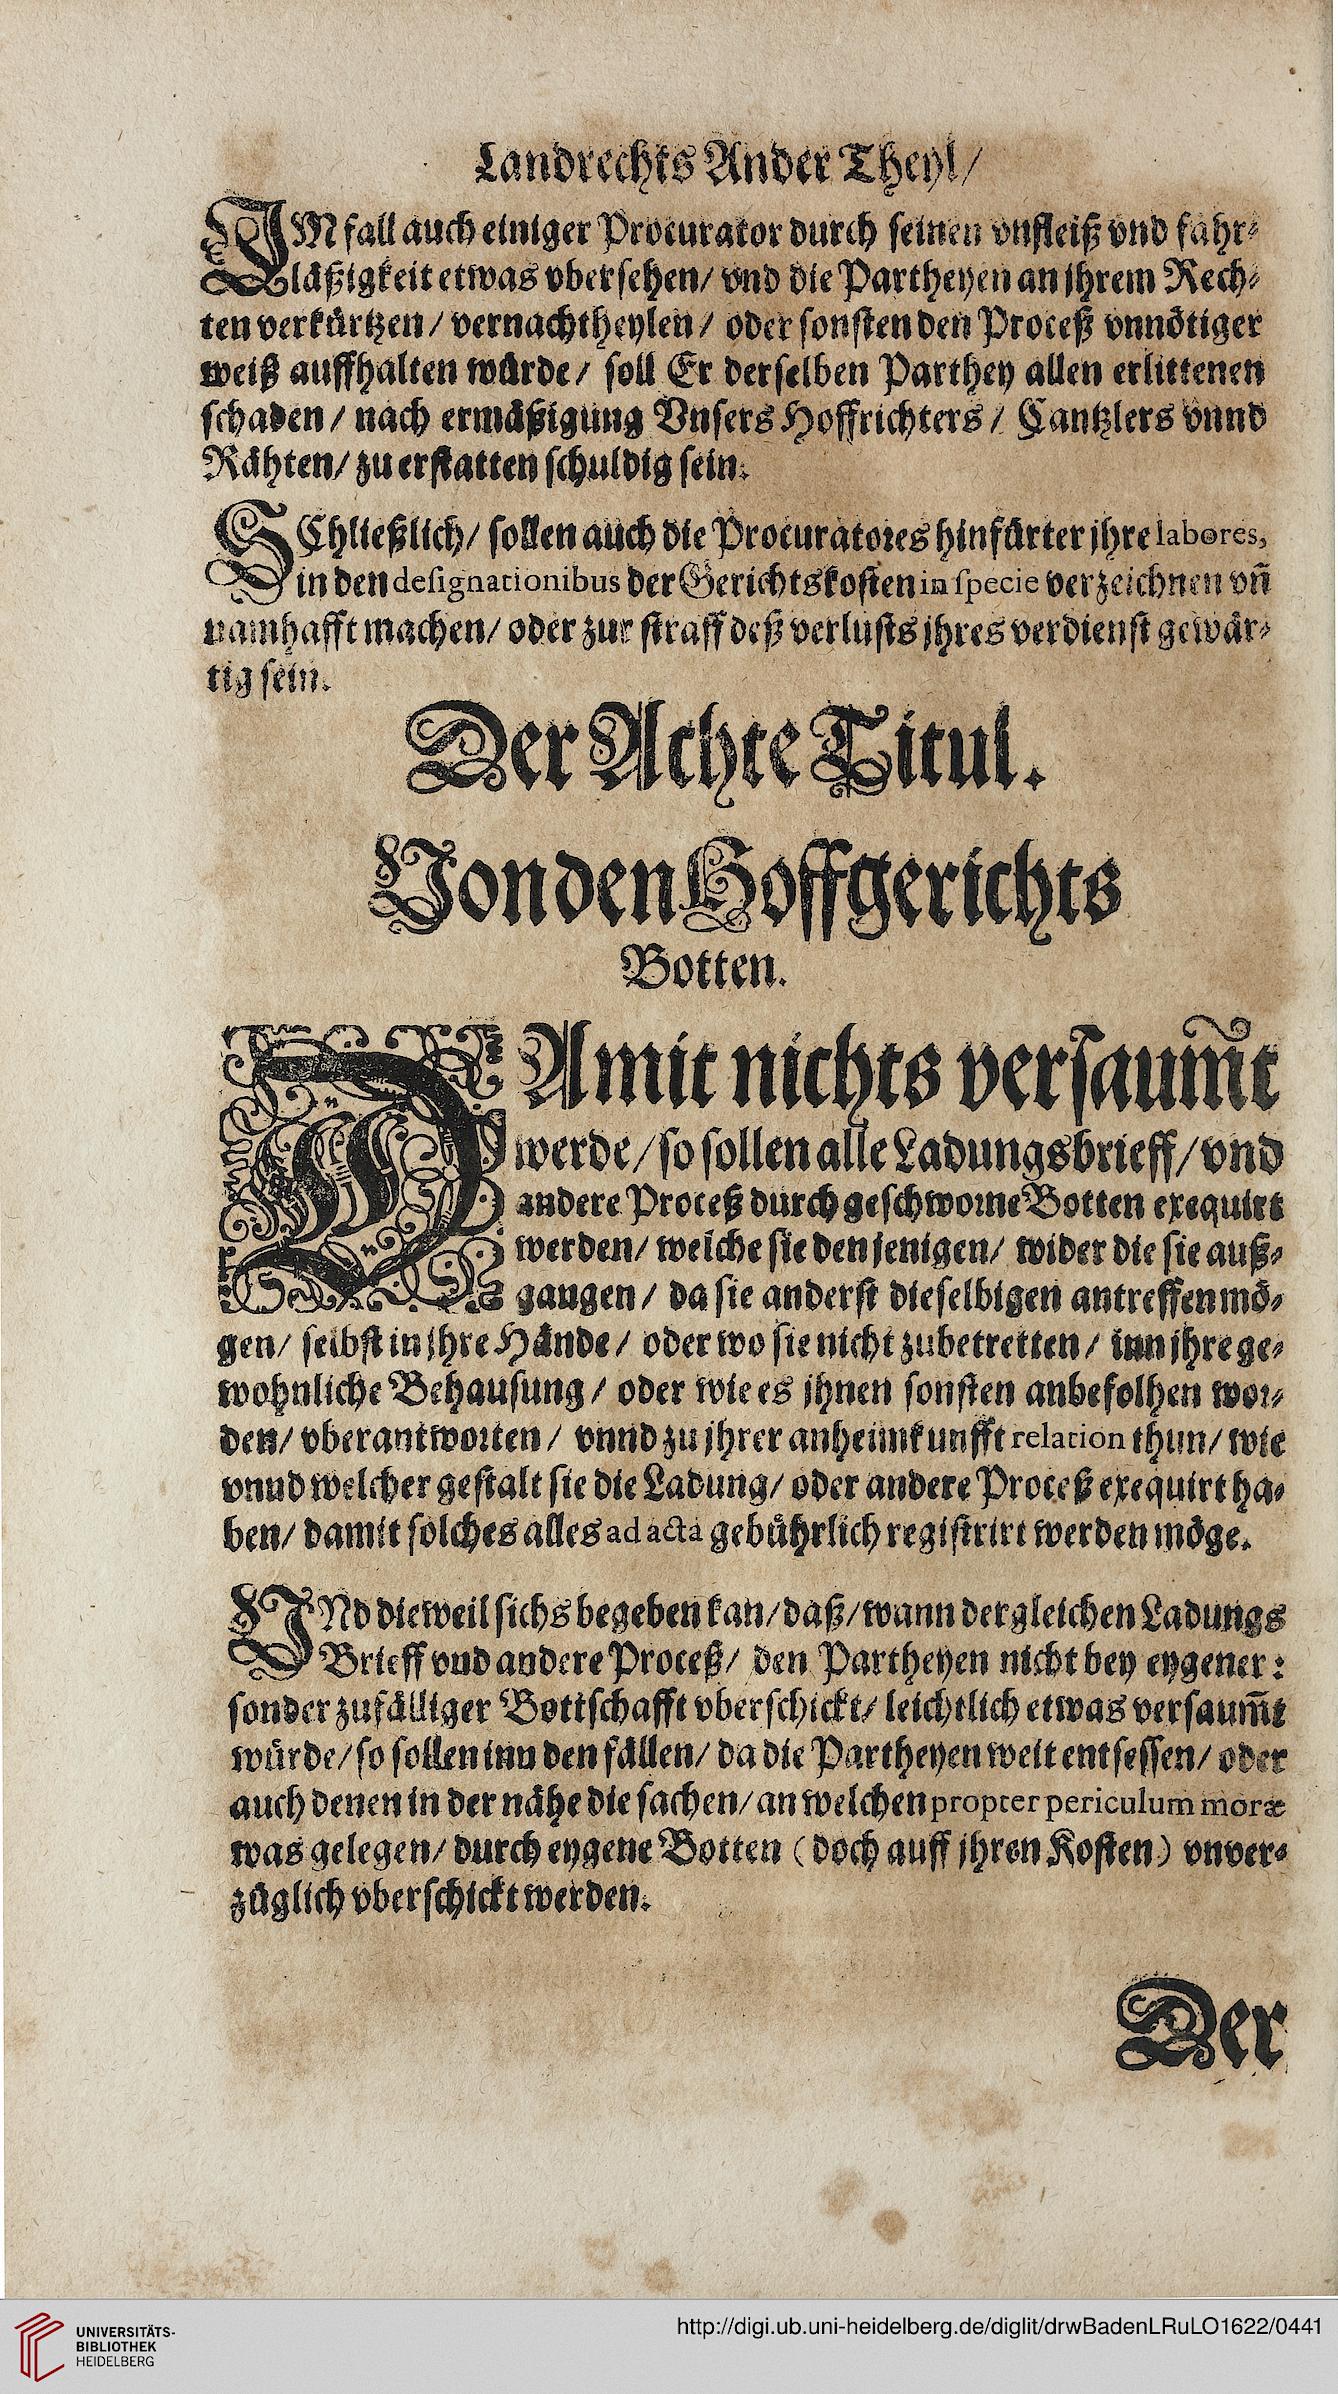 Landrechts Ander Theyl/
IM fall auch einiger Procurator durch seinen vnfleiß vnd fahr-
läßigkeit etwas vbersehen/ vnd die Partheyen an jhrem Rech-
ten verkürtzen/ vernachtheylen/ oder sonsten den Proceß vnnötiger
weiß auffhalten würde/ soll Er derselben Parthey allen erlittenen
schaden/ nach ermäßigung Vnsers Hoffrichters/ Cantzlers vnnd
Rähten/ zu erstatten schuldig sein.
SChließlich/ sollen auch die Procuratores hinfürter jhre labores,
in den designationibus der Gerichtskosten in specie verzeichnen vñ
namhafft machen/ oder zur straff deß verlusts jhres verdienst gewär-
tig sein.
Der Achte Titul.
Von den Hoffgerichts
Botten.
DAmit nichts versaum̃t
werde/ so sollen alle Ladungsbrieff/ vnd
andere Proceß durch geschworne Botten exequirt
werden/ welche sie denjenigen/ wider die sie auß-
gangen/ da sie anderst dieselbigen antreffen mö-
gen/ selbst in jhre Hände/ oder wo sie nicht zubetretten/ inn jhre ge-
wohnliche Behausung/ oder wie es jhnen sonsten anbefolhen wor-
den/ vberantworten/ vnnd zu jhrer anheimkunfft relation thun/ wie
vnnd welcher gestalt sie die Ladung/ oder andere Proceß exequirt ha-
ben/ damit solches alles ad acta gebührlich registrirt werden möge.
VNd dieweil sichs begeben kan/ daß/ wann dergleichen Ladungs
Brieff vnd andere Proceß/ den Partheyen nicht bey eygener:
sonder zufälliger Bottschafft vberschickt/ leichtlich etwas versaum̃t
würde/ so sollen inn den fällen/ da die Partheyen weit entsessen/ oder
auch denen in der nähe die sachen/ an welchen propter periculum moræ
was gelegen/ durch eygene Botten (doch auff jhren Kosten) vnver-
züglich vberschickt werden.
Der
UNIVERSITÄTS-
BIBLIOTHEK
HEIDELBERG
http://digi.ub.uni-heidelberg.de/diglit/drwBadenLRuLO1622/0441